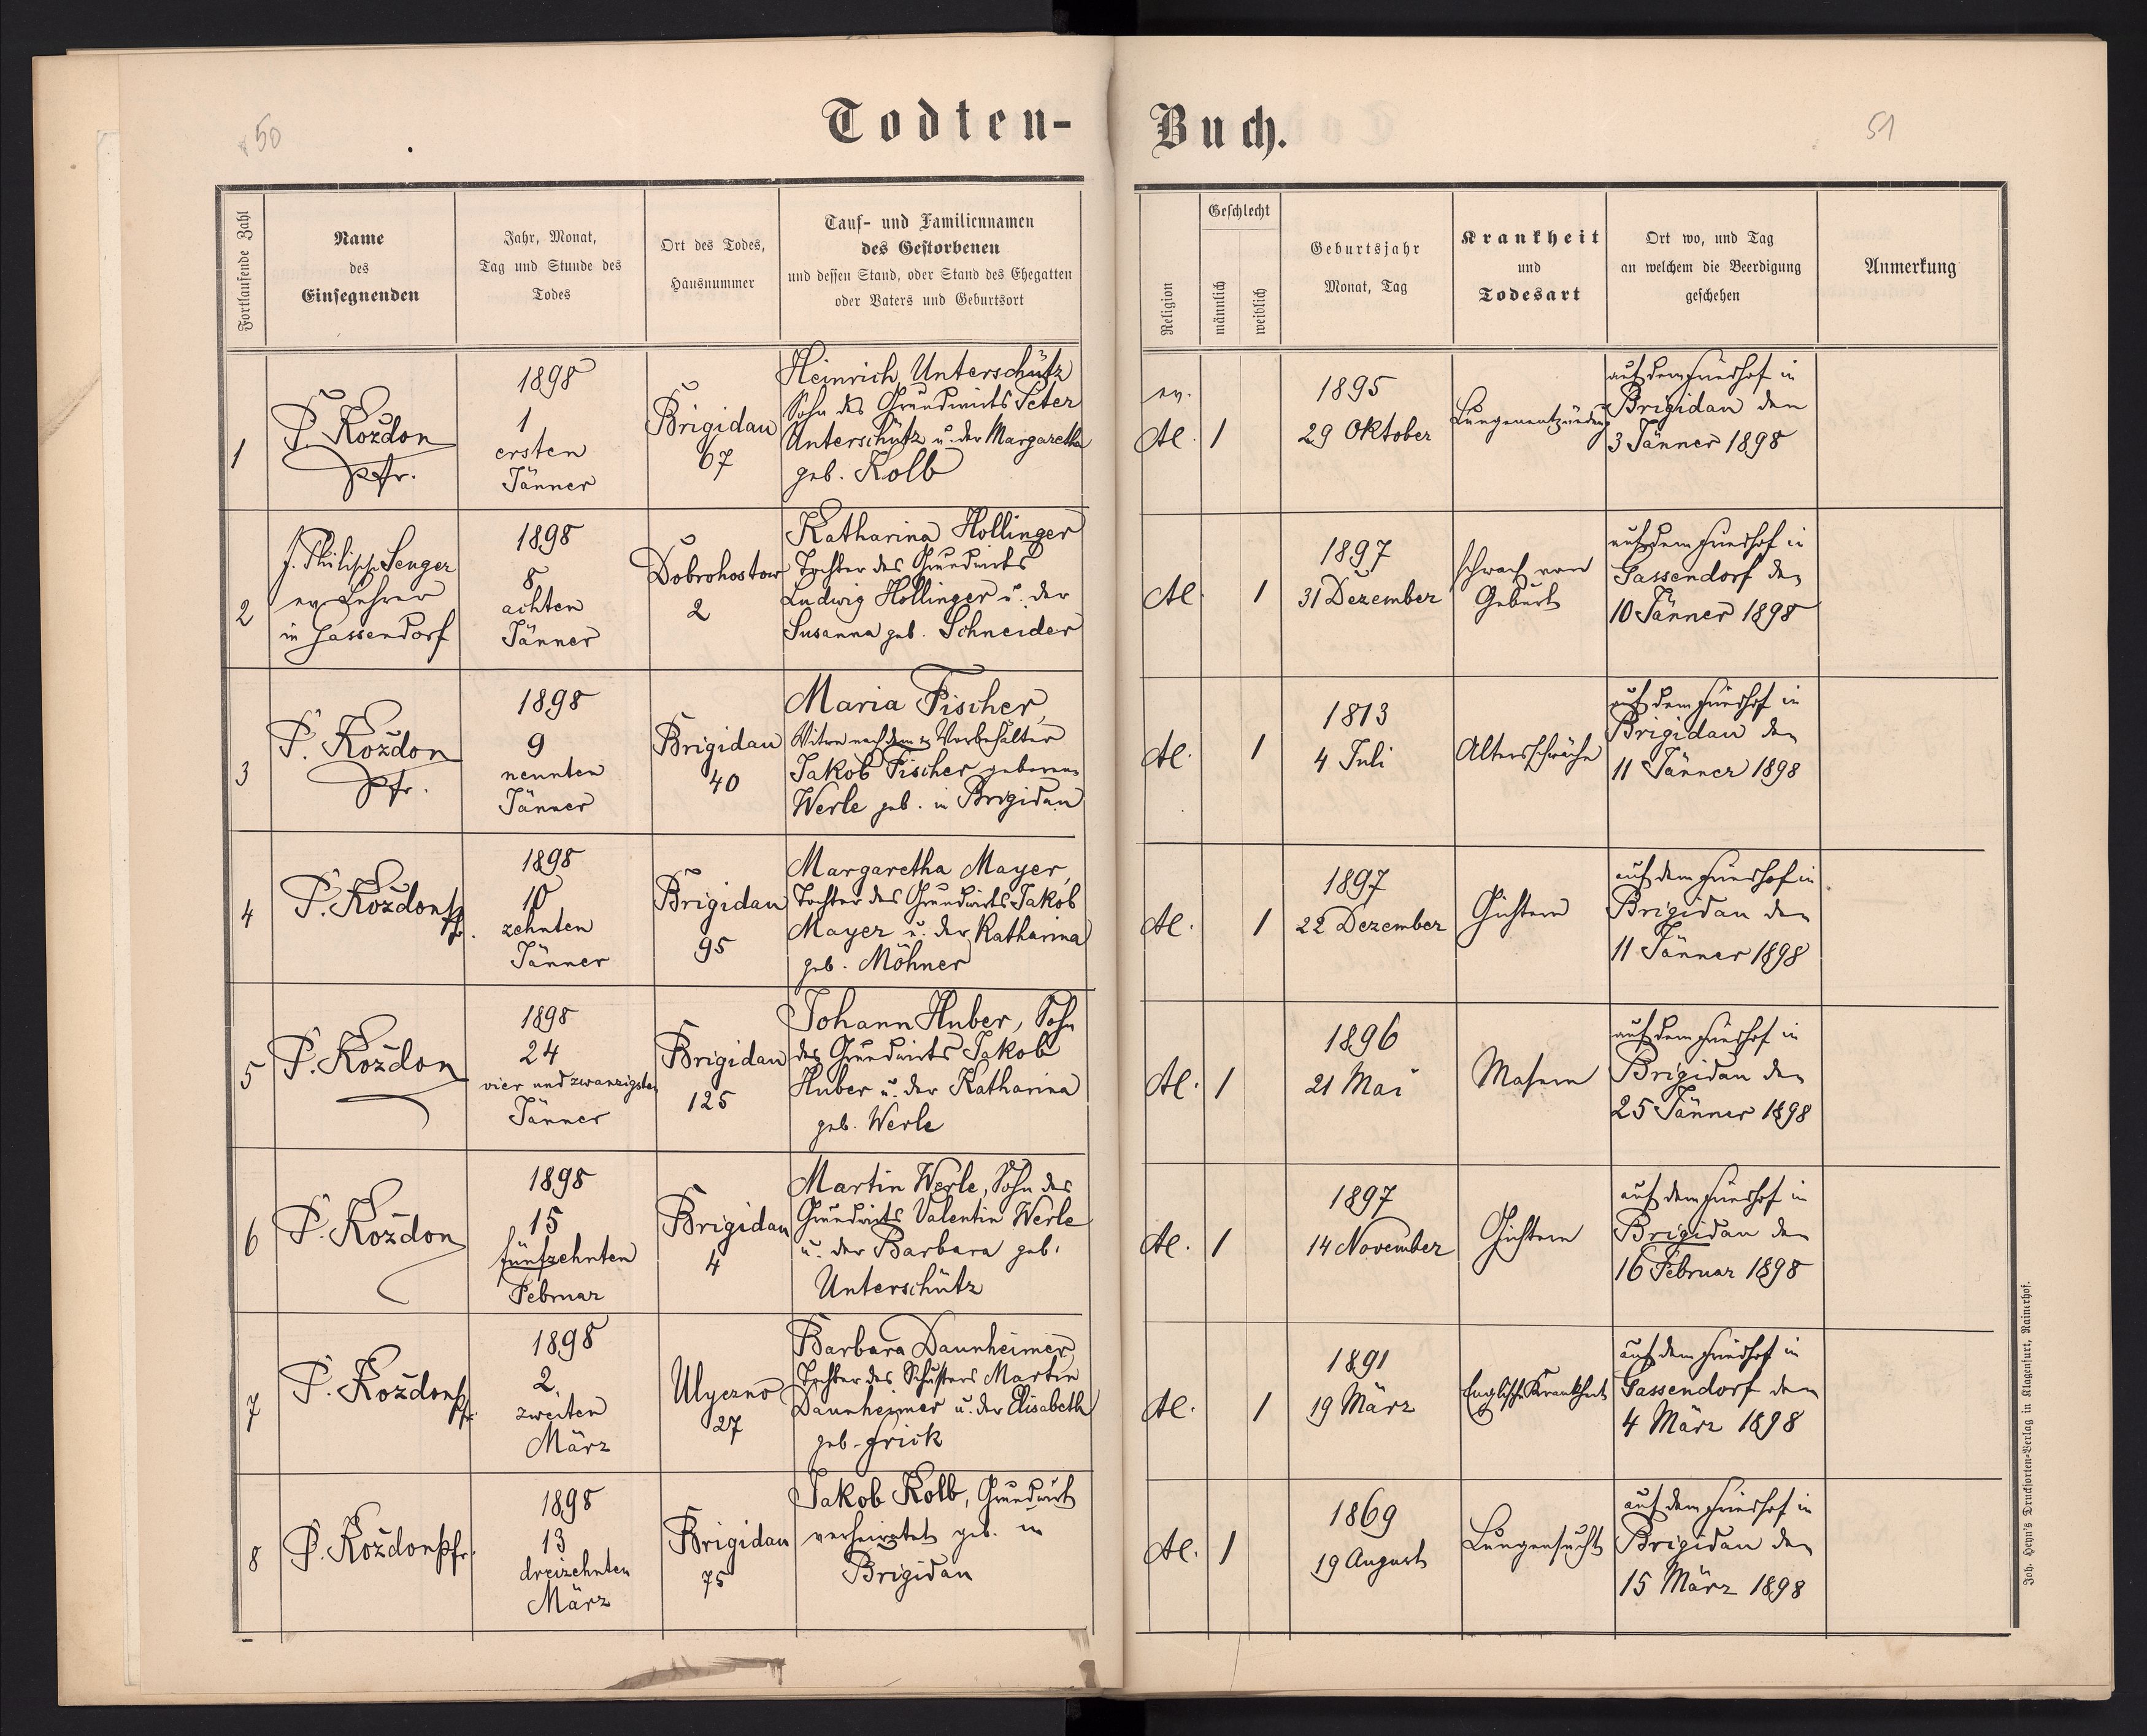 50
Todten-
Buch.
51
Fortlaufende Zahl
Name
des
Einsegnenden
Jahr, Monat,
Tag und Stunde des
Todes
Ort des Todes,
Hausnummer
Tauf- und Familiennamen
des Gestorbenen
und dessen Stand, oder Stand des Ehegatten
oder Vaters und Geburtsort
Religion
Geschlecht
männlich
weiblich
Geburtsjahr
Monat, Tag
Krankheit
und
Todesart
Ort wo, und Tag
an welchem die Beerdigung
geschehen
Anmerkung
1
P. Koždon
Pfr.
1898
1
ersten
Jänner
Brigidau
67
Heinrich Unterschütz
Sohn des Grundwirts Peter
Unterschütz u. der Margaretha
geb. Kolb
ev.
A.
1
1895
29 Oktober
Lungenentzündung
auf dem Friedhof in
Brigidau den
3 Jänner 1898
2
J. Philipp Senger
ev. Lehrer
in Gassendorf
1898
8
achten
Jänner
Dobrohostow
2
Katharina Hollinger
Tochter des Grundwirts
Ludwig Hollinger u. der
Susanna geb. Schneider
1
1897
31 Dezember
schwach von
Geburt
auf dem Friedhof in
Gassendorf den
10 Jänner 1898
3
P. Koždon
Pfr.
1898
9
neunten
Jänner
Brigidau
40
Maria Fischer,
Witwe nach dem Vorbehälter
Jakob Fischer geborene
Werle geb. in Brigidau
1
1813
4 Juli
Altersschwäche
auf dem Friedhof in
Brigidau den
11 Jänner 1898
4
P. Koždon Pfr.
1898
10
zehnten
Jänner
Brigidau
95
Margaretha Mayer,
Tochter des Grundwirts Jakob
Mayer u. der Katharina
geb. Möhner
1
1897
22 Dezember
Gichtern
auf dem Friedhof in
Brigidau den
11 Jänner 1898
5
P. Koždon
1898
24
vier und zwanzigsten
Jänner
Brigidau
125
Johann Huber, Sohn
des Grundwirts Jakob
Huber u. der Katharina
geb. Werle
1
1896
21 Mai
Masern
auf dem Friedhof in
Brigidau den
25 Jänner 1898
6
P. Koždon
1898
15
fünfzehnten
Februar
Brigidau
4
Martin Werle, Sohn des
Grundwirts Valentin Werle
u. der Barbara geb.
Unterschütz
1
1897
14 November
Gichtern
auf dem Friedhof in
Brigidau den
16 Februar 1898
7
P. Koždon Pfr.
1898
2.
zweiten
März
Ulyczno
27
Barbara Daunheimer
Tochter des Schusters Martin
Daunheimer u. der Elisabeth
geb. Frick
1
1891
19 März
Englische Krankheit
auf dem Friedhof in
Gassendorf den
4 März 1898
8
P. Koždon Pfr.
1898
13
dreizehnten
März
Brigidau
75
Jakob Kolb, Grundwirt
verheiratet geb. in
Brigidau
1
1869
19 August
Lungensucht
auf dem Friedhof in
Brigidau den
15 März 1898
Joh. Heyn's Drucksorten-Verlag in Klagenfurt, Rainerhof.